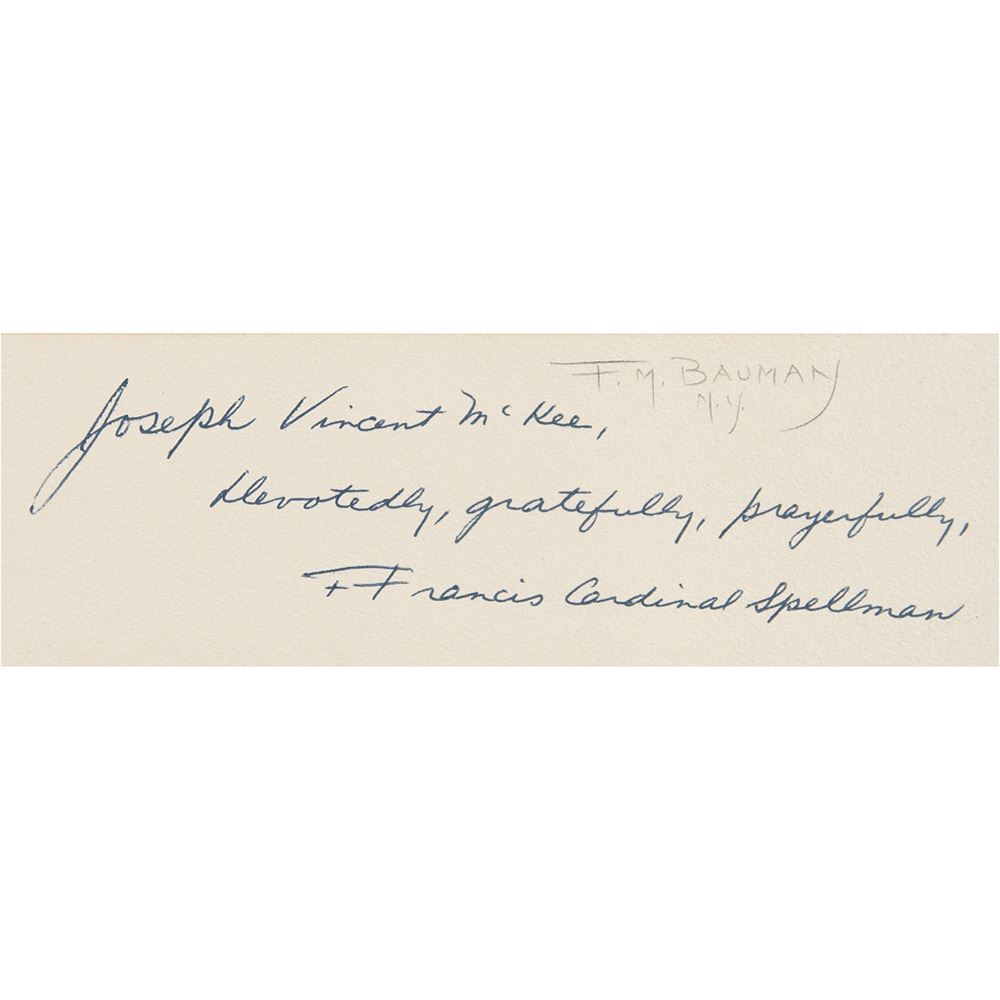 F. M. BAUMAN
N.Y.
Joseph Vincent McKee,
Devotedly, gratefully, prayerfully,
+Francis Cardinal Spellman